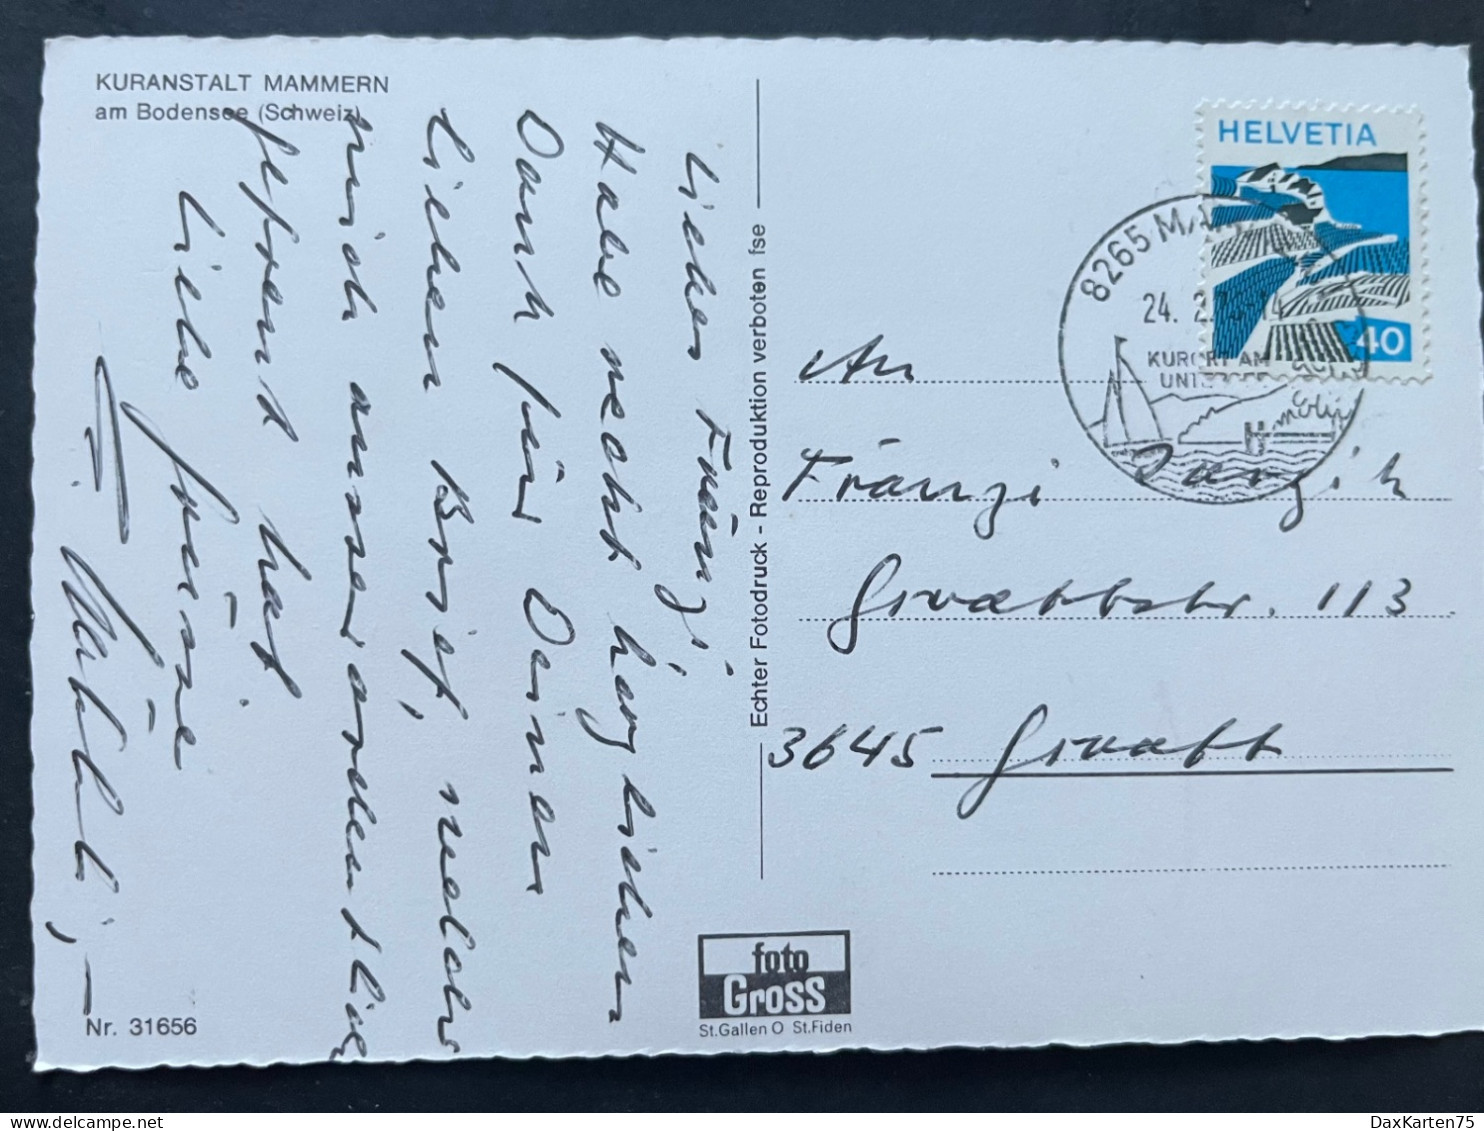 KURANSTALT MAMMERN
am Bodensee (Schweiz)
Liebes Fränzi,
Habe recht herzlichen
Dank für Deinen
lieben Brief, welcher
mich ausserordentlich
gefreut hat.
Liebe Grüsse
Nr. 31656
Echter Fotodruck - Reproduktion verboten fse
foto
Gross
St.Gallen O St.Fiden
HELVETIA
40
8265 MA
24. 2.7 -14
KURORT AM
UNTERSEE
An
Fränzi
Gwattstr. 113
3645 Gwatt
DaxKarten75